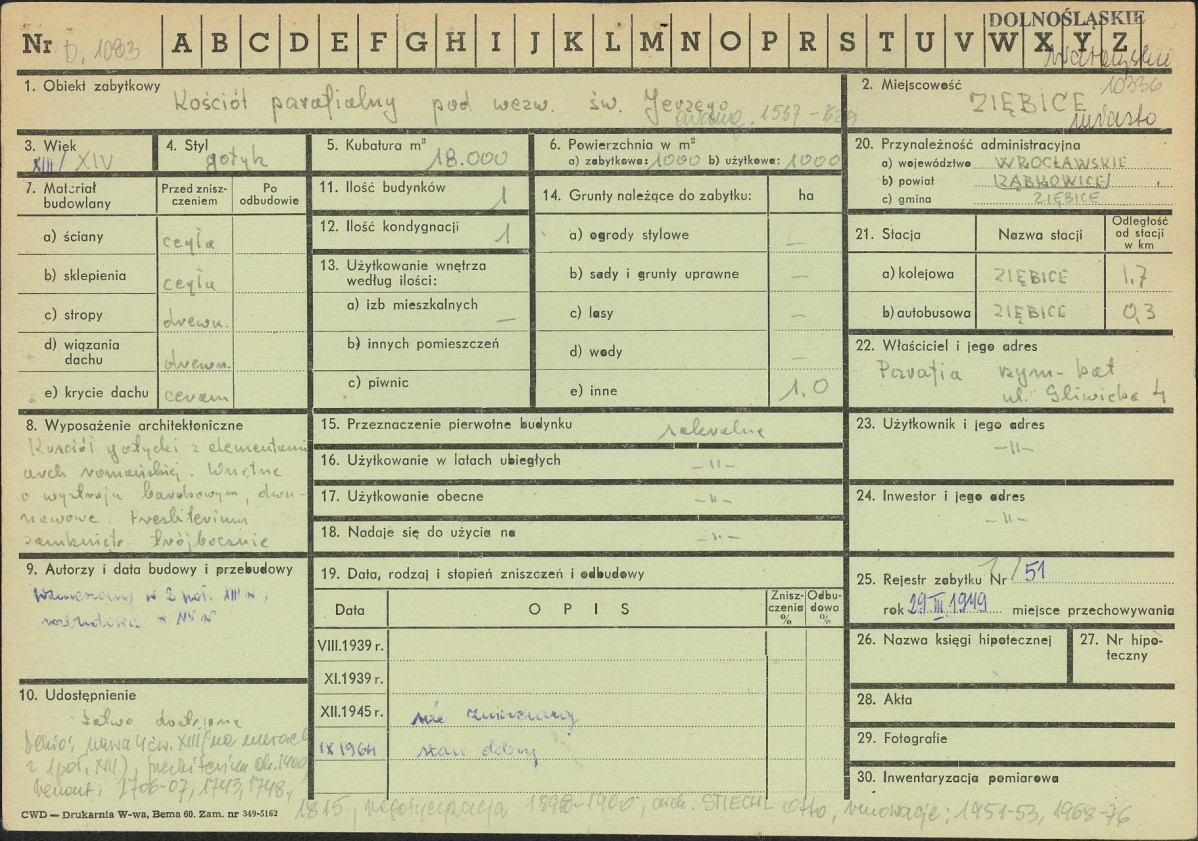 DOLNOŚLĄSKIE
Nr D. 1083 A B C D E F G H I J K L M N O P R S T U V W X Y Z
1. Obiekt zabytkowy
Kościół parafialny pod wezw. św. Jerzego
1567 -
2. Miejscowość 10336
ZIĘBICE
miasto
3. Wiek
XIII/XIV
4. Styl
gotyk
5. Kubatura m³
18.000
6. Powierzchnia w m²
a) zabytkowa: 1000 b) użytkowa: 1000
20. Przynależność administracyjna
a) województwo WROCŁAWSKIE
b) powiat ZĄBKOWICE
c) gmina ZIĘBICE
7. Materiał budowlany
Przed zniszczeniem
Po odbudowie
a) ściany cegła
b) sklepienia cegła
c) stropy drewn.
d) wiązania dachu drewn.
e) krycie dachu ceram
11. Ilość budynków 1
12. Ilość kondygnacji 1
13. Użytkowanie wnętrza według ilości:
a) izb mieszkalnych –
b) innych pomieszczeń
c) piwnic
14. Grunty należące do zabytku: ha
a) ogrody stylowe –
b) sady i grunty uprawne –
c) lasy –
d) wody –
e) inne 1.0
21. Stacja Nazwa stacji Odległość od stacji w km
a) kolejowa ZIĘBICE 1,7
b) autobusowa ZIĘBICE 0,3
22. Właściciel i jego adres
Parafia rzym-kat
ul. Gliwicka 4
8. Wyposażenie architektoniczne
Kościół gotycki z elementami
arch romańskiej. Wnętrze
o wystroju barokowym, dwu-
nawowe. Presbiterium
zamknięte trójbocznie
15. Przeznaczenie pierwotne budynku sakralne
16. Użytkowanie w latach ubiegłych -"-
17. Użytkowanie obecne -"-
18. Nadaje się do użycia na -"-
23. Użytkownik i jego adres
-"-
24. Inwestor i jego adres
-"-
9. Autorzy i data budowy i przebudowy
wzniesiony w 2 poł. XIII w,
rozbudowa w XV w
19. Data, rodzaj i stopień zniszczeń i odbudowy
Data OPIS Zniszczenia % Odbudowa %
VIII.1939 r.
XI.1939 r.
XII.1945 r. nie zniszczony
IX 1964 stan dobry
25. Rejestr zabytku Nr 1/51
rok 29 III 1949 miejsce przechowywania
26. Nazwa księgi hipotecznej
27. Nr hipoteczny
28. Akta
29. Fotografie
30. Inwentaryzacja pomiarowa
10. Udostępnienie
łatwo dostępne
Dehio: nawa 4 ćw. XIII (na murach
z 1 poł. XIII), prezbiterium ok. 1400,
remont: 1706-07, 1743, 1748,
1815, regotycyzacja 1898-1900, arch. STIEHL Otto, renowacje: 1951-53, 1968-76
CWD — Drukarnia W-wa, Bema 60. Zam. nr 349-5162